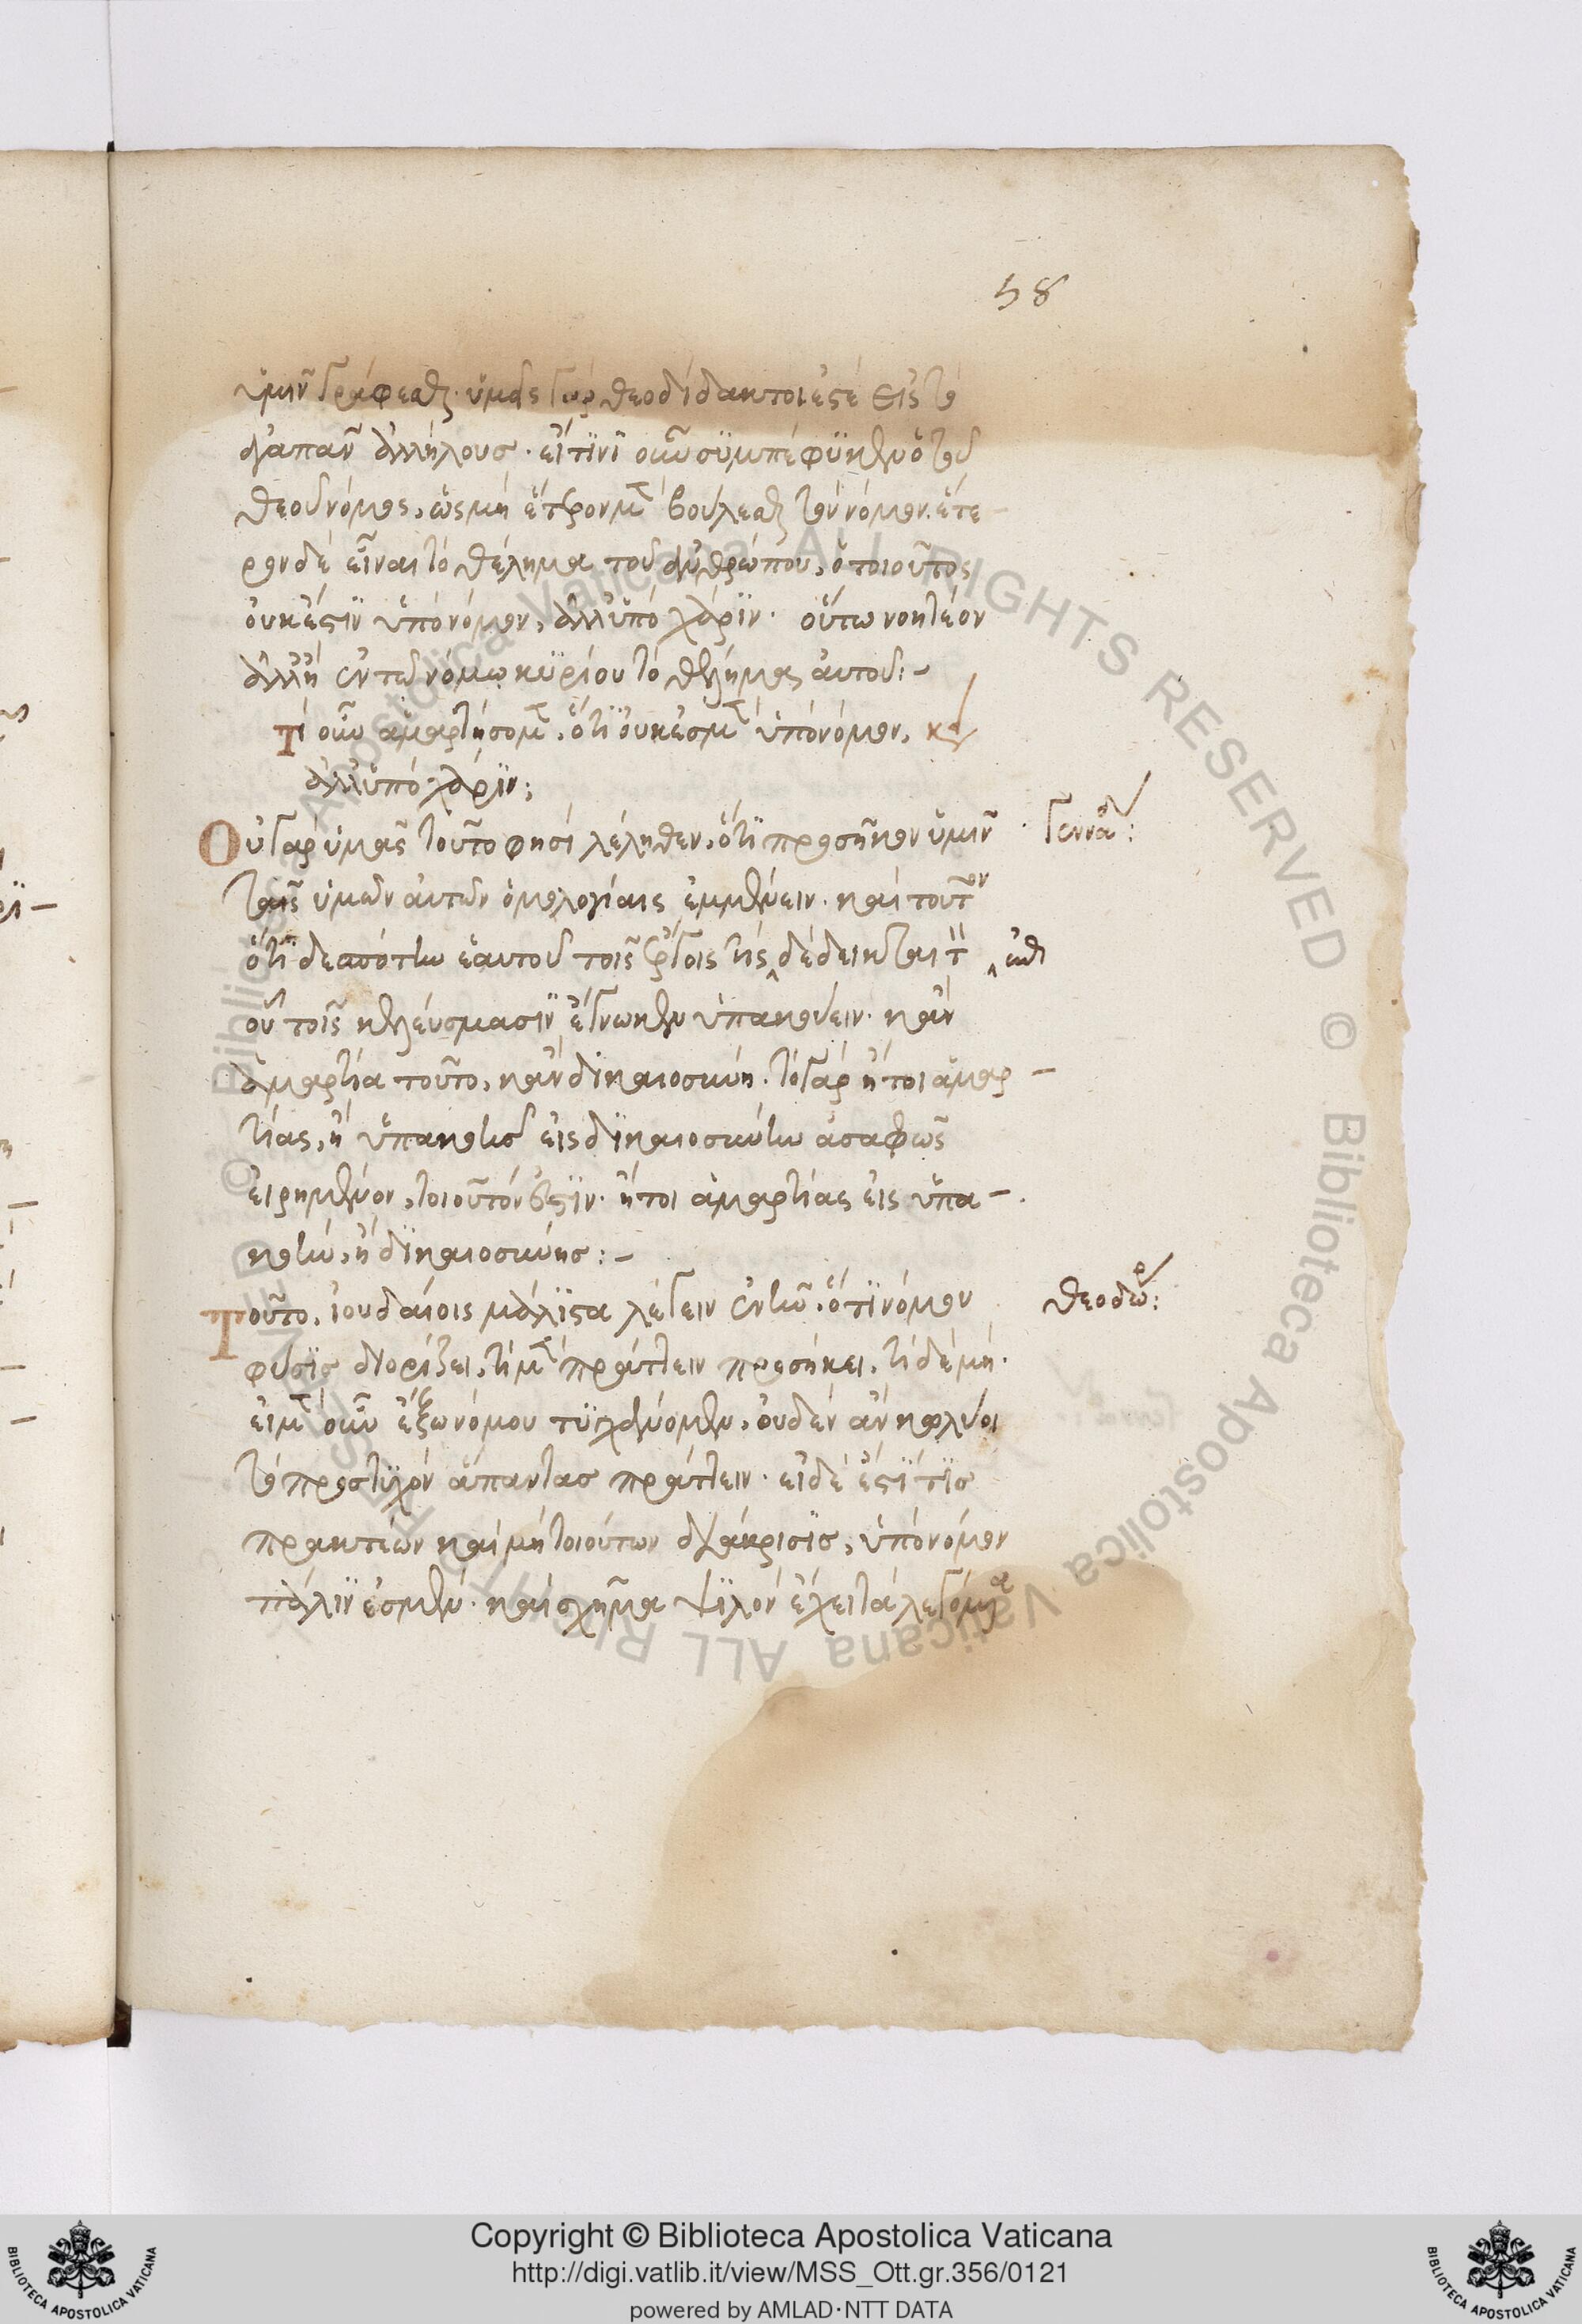 58
ὑμῖν γράφεσθαι· ὑμεῖς γὰρ θεοδίδακτοι ἐστὲ εἰς τὸ
ἀγαπᾶν ἀλλήλους· εἴ τινι οὖν συμπέφυκεν ὁ τοῦ
θεοῦ νόμος, ὡς μὴ ἕτερον μὲν βούλεσθαι τὸν νόμον, ἕτε-
ρον δὲ εἶναι τὸ θέλημα τοῦ ἀνθρώπου, ὁ τοιοῦτος
οὐκ ἔστιν ὑπὸ νόμον, ἀλλ' ὑπὸ χάριν· οὕτω νοητέον
ἀλλ' ἢ ἐν τῷ νόμω κυρίου τὸ θέλημα αὐτοῦ:-
Τί οὖν ἁμαρτήσομεν, ὅτι οὐκ ἐσμὲν ὑπὸ νόμον,
ἀλλ' ὑπὸ χάριν;
Οὐ γὰρ ὑμᾶς τοῦτο φησὶ λέληθεν, ὅτι προσῆκον ὑμῖν
Γεννα:
ταῖς ὑμῶν αὐτῶν ὁμολογίαις ἐμμένειν· καὶ τοῦτον
ὅτι δεσπότην ἑαυτοῦ τοῖς ἔργοις τις δέδεικται
οὗ τοῖς κελεύσμασιν ἔγνωκεν ὑπακούειν· κἂν
ἁμαρτία τοῦτο, κἂν δικαιοσύνη· τὸ γὰρ ἤτοι ἁμαρ-
τίας, ἢ ὑπακοῆς εἰς δικαιοσύνην ἀσαφῶς
εἰρημένον, τοιοῦτόν ἐστιν· ἤτοι ἁμαρτίας εἰς ὑπα-
κοὴν, ἢ δικαιοσύνης:-
Τοῦτο, ἰουδαίοις μάλιστα λέγειν ἐνῆν, ὅτι νόμον
Θεοδώρ:
φύσις διορίζει, τί μὲν πράττειν προσήκει, τί δὲ μή·
εἰ μὲν οὖν ἔξω νόμου τυγχάνομεν, οὐδὲν ἂν κωλύοι
τὸ προστυχὸν ἅπαντας πράττειν· εἰ δὲ ἐστί τις
πρακτέων καὶ μὴ τοιούτων διάκρισις, ὑπὸ νόμον
πάλιν ἐσμέν· καὶ σχῆμα ψιλὸν ἔχει τὰ λεγόμενα
Copyright © Biblioteca Apostolica Vaticana
http://digi.vatlib.it/view/MSS_Ott.gr.356/0121
powered by AMLAD·NTT DATA
BIBLIOTECA APOSTOLICA VATICANA
BIBLIOTECA APOSTOLICA VATICANA
© Biblioteca Apostolica Vaticana ALL RIGHTS RESERVED © Biblioteca Apostolica Vaticana ALL RIGHTS RESERVED